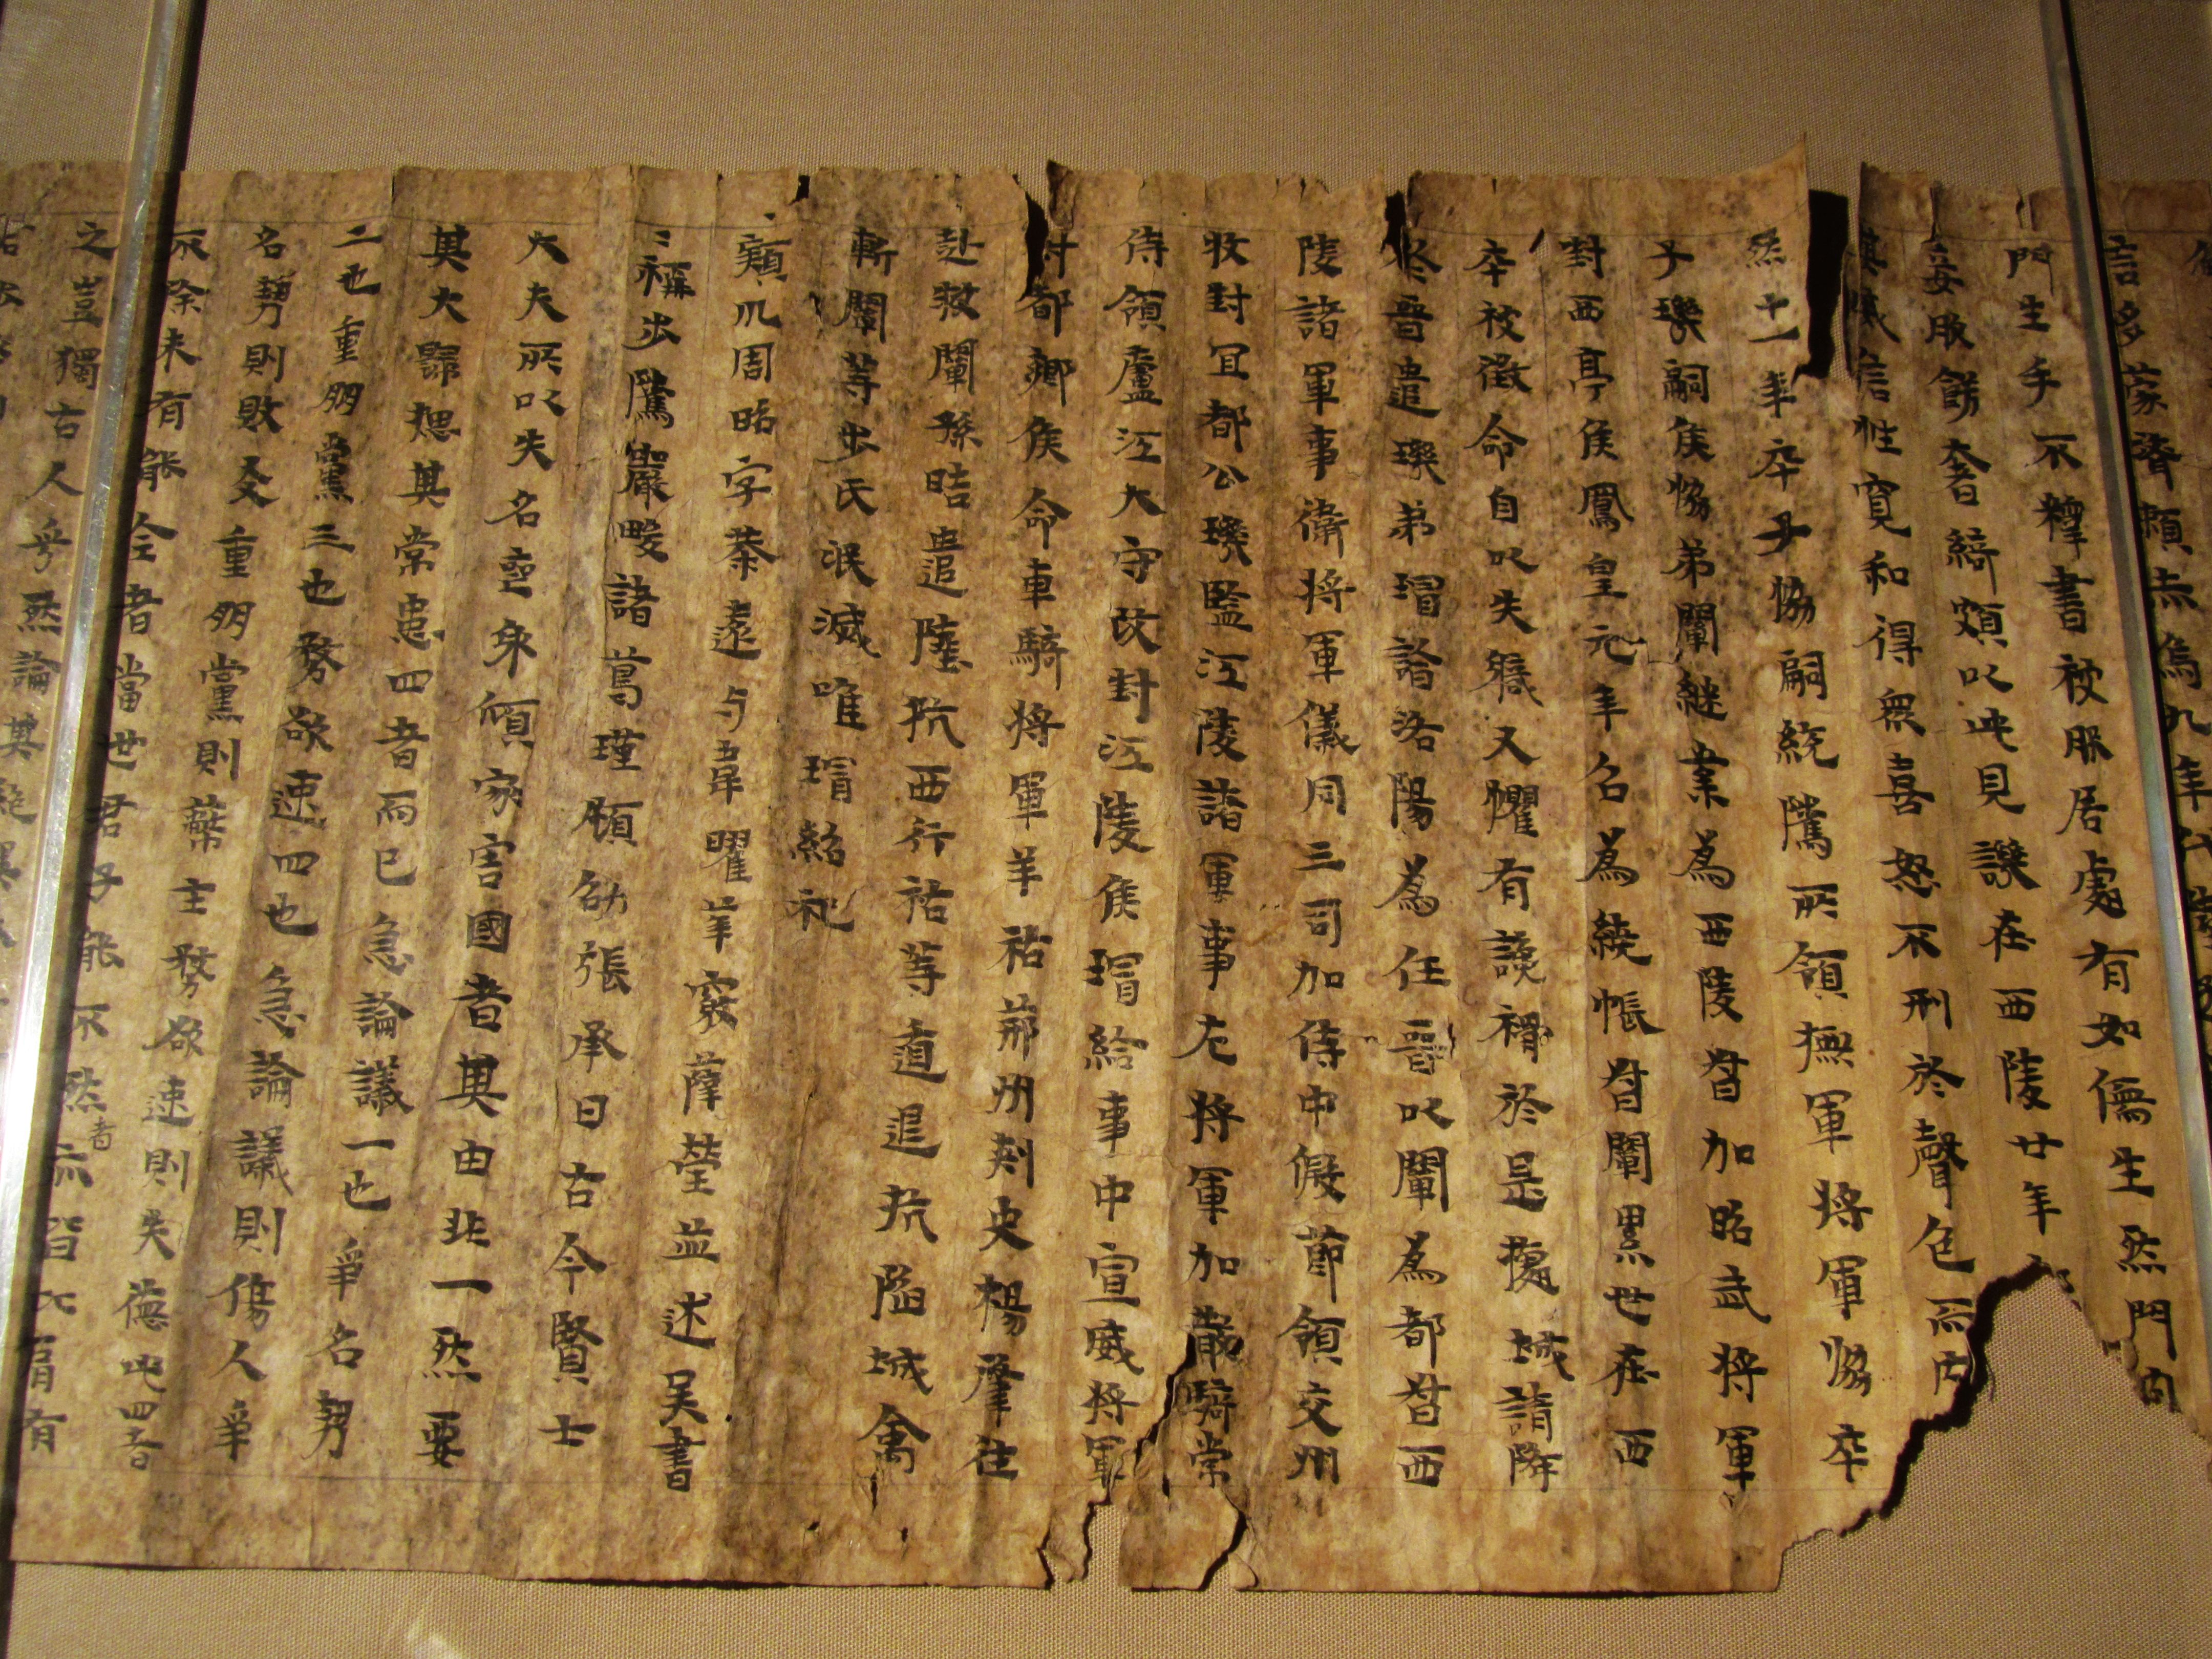 言多蒙濟頼赤烏九年代陸
門生手不釋書被服居處有如儒生然門内
妾服飾奢綺頗以此見譏在西陵廿年
其威信性寬和得衆喜怒不刑於聲色而内
然十一年卒子協嗣統隲所領撫軍将軍協卒
子璣嗣侯協弟闡継業為西陵督加昭武将軍
封西亭侯鳳皇元年召為繞帳督闡累世在西
卒被徵命自以失軄又懼有讒禍於是據城請降
晉遣璣弟璿詣洛陽為任晉以闡為都督西
陵諸軍事衛将軍儀同三司加侍中假節領交州
牧封宜都公璣監江陵諸軍事左将軍加散騎常
侍領廬江大守改封江陵侯璿給事中宣威将軍
封都鄉侯命車騎将軍羊祜荊州刺史楊肇往
赴救闡孫晧遣陸抗西行祜等遁退抗陷城禽
斬闡等步氏泯滅唯璿紹祀
潁川周昭字恭遠与韋曜華覈薛瑩並述吴書
稱步隲嚴畯諸葛瑾顧劭張承曰古今賢士
大夫所以失名喪身傾家害國者其由非一然要
其大歸揔其常患四者而已急論議一也爭名勢
二也重朋黨三也務欲速四也急論議則傷人爭
名勢則敗友重朋黨則蔽主務欲速則失德此四者
不除未有能全者當世君子能不然者亦皆比肩有
之豈獨古人乎然論其絕異